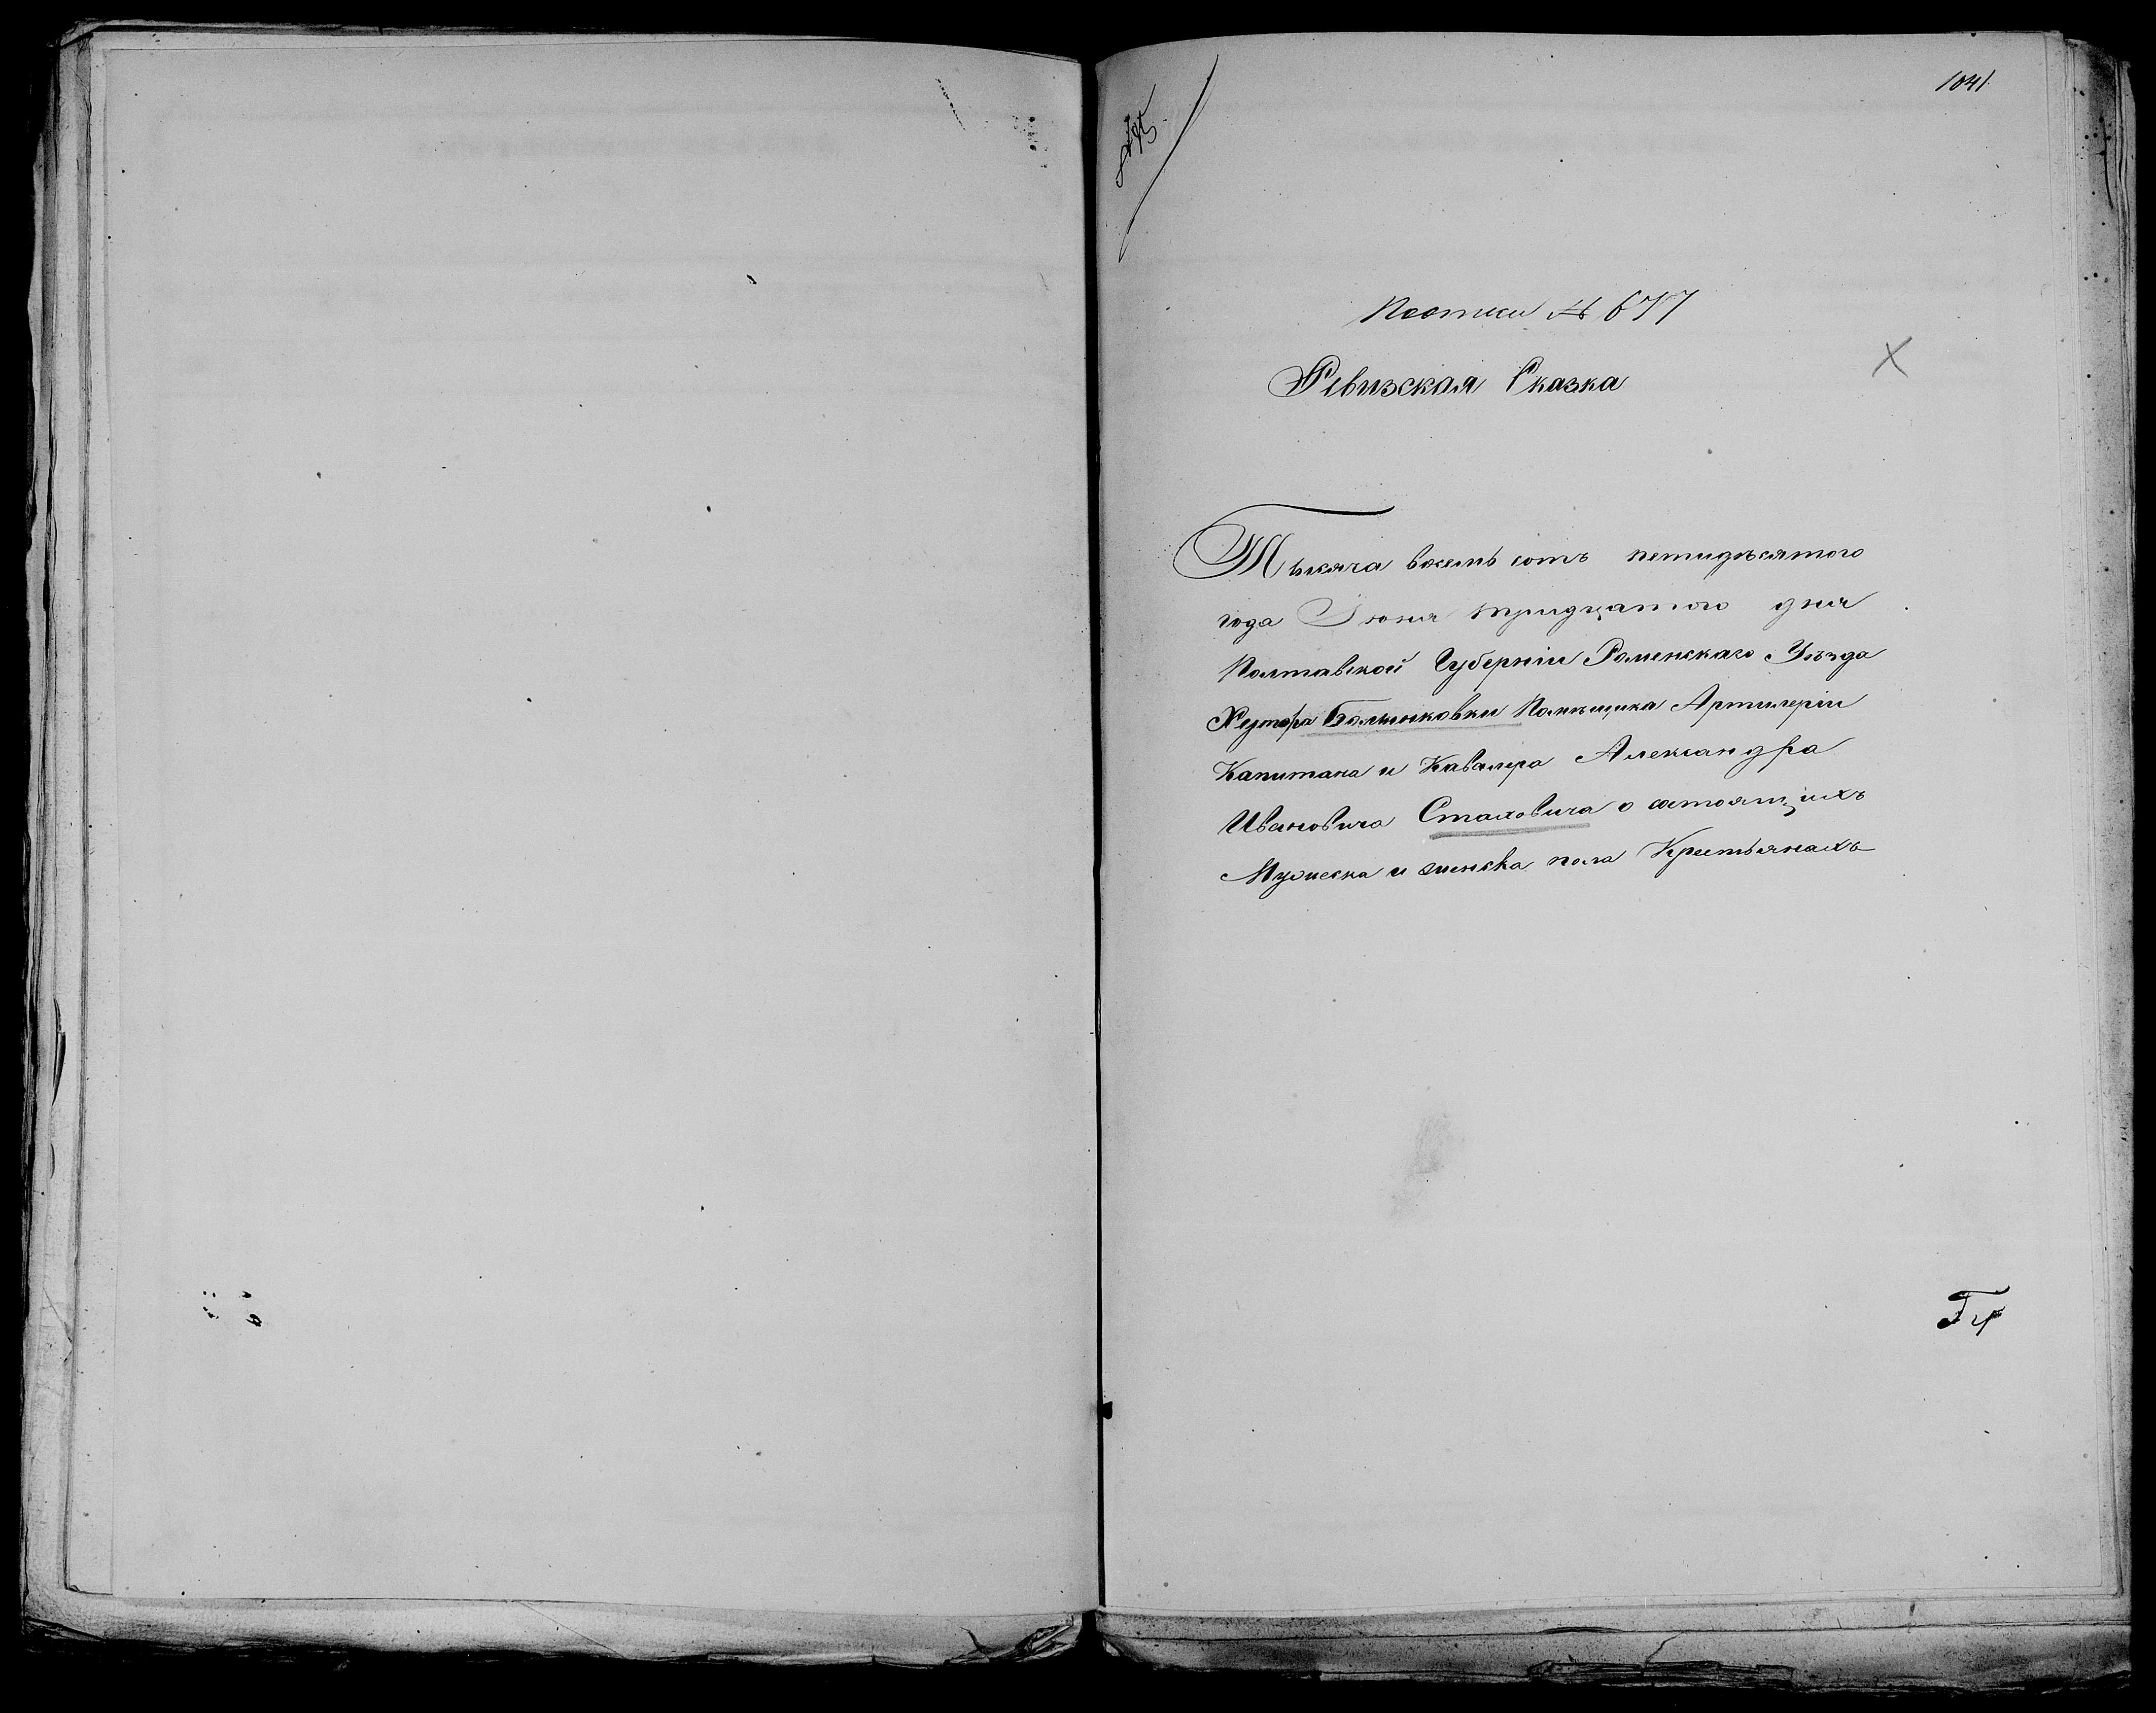 1041
По описи № 677
Ревизская Сказка
Тысяча восемь сотъ петидѣсятого
года Июня тридцатого дня
Полтавской Губерніи Роменскаго Уѣзда
Хутора Помѣщика Артилеріи
Капитана и Кавалера Александра
Ивановича о состоящихъ
Мужеска и женска пола Крестьянахъ